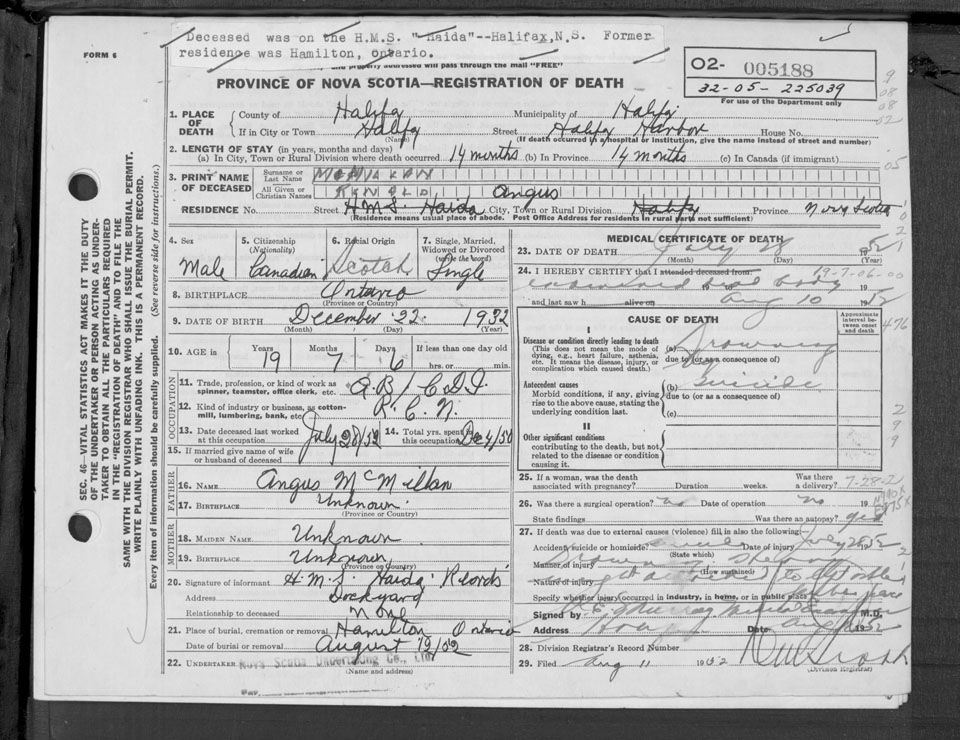 Deceased was on the H.M.S. "Haida"--Halifax,N.S. Former
residence was Hamilton, ontario.
FORM 6
and property addressed will pass through the mail "FREE"
PROVINCE OF NOVA SCOTIA—REGISTRATION OF DEATH
02- 005188
32-05-225039
For use of the Department only
1. PLACE OF DEATH
County of Halifx Municipality of Halifx
If in City or Town Halifx Street Halifx Harbor House No.
(Name) (If death occurred in a hospital or institution, give the name instead of street and number)
2. LENGTH OF STAY (in years, months and days)
(a) In City, Town or Rural Division where death occurred 14 months (b) In Province 14 months (c) In Canada (if immigrant)
3. PRINT NAME OF DECEASED
Surname or Last Name
All Given or Christian Names Angus
RESIDENCE No. Street H.M.S. Haida City, Town or Rural Division Halifx Province Nova Scotia
(Residence means usual place of abode. Post Office Address for residents in rural parts not sufficient)
4. SEX Male
5. Citizenship (Nationality) Canadian
6. Racial Origin Scotch
7. Single, Married, Widowed or Divorced (write the word) Single
8. BIRTHPLACE Ontario
(Province or Country)
9. DATE OF BIRTH December 22 1932
(Month) (Day) (Year)
10. AGE in Years 19 Months 7 Days 6 If less than one day old
hrs. or min.
OCCUPATION
11. Trade, profession, or kind of work as spinner, teamster, office clerk, etc. A.B/C.D.I.
12. Kind of industry or business, as cotton-mill, lumbering, bank, etc R.C.N.
13. Date deceased last worked at this occupation July 28/52
14. Total yrs. spent in this occupation Dec 4/50
15. If married give name of wife or husband of deceased
FATHER
16. NAME Angus McMillan
17. BIRTHPLACE Unknown
(Province or Country)
MOTHER
18. MAIDEN NAME Unknown
19. BIRTHPLACE Unknown
(Province or Country)
20. Signature of informant H.M.S. Haida Records
Address Dockyard
Relationship to deceased None
21. Place of burial, cremation or removal Hamilton Ontario
Date of burial or removal August 12/52
22. UNDERTAKER Nova Scotia Undertaking Co., Ltd
(Name and address)
MEDICAL CERTIFICATE OF DEATH
23. DATE OF DEATH July 28 1952
(Month) (Day) (Year)
24. I HEREBY CERTIFY that I attended deceased from:
examined dead body 19
and last saw h alive on Aug 10 1952
CAUSE OF DEATH
Approximate interval between onset and death
I
Disease or condition directly leading to death (This does not mean the mode of dying, e.g., heart failure, asthenia, etc. It means the disease, injury, or complication which caused death.)
(a) Drowning
due to (or as a consequence of)
Antecedent causes
Morbid conditions, if any, giving rise to the above cause, stating the underlying condition last.
(b) Suicide
due to (or as a consequence of)
(c)
II
Other significant conditions contributing to the death, but not related to the disease or condition causing it.
25. If a woman, was the death associated with pregnancy? Duration weeks. Was there a delivery?
26. Was there a surgical operation? no Date of operation no
State findings Was there an autopsy? yes
27. If death was due to external causes (violence) fill in also the following:
Accident, suicide or homicide? suicide Date of injury July 28 1952
(State which)
Manner of injury
(How sustained)
Nature of injury
Specify whether injury occurred in industry, in home, or in public place
Signed by M.D.
Address Date Aug 1952
28. Division Registrar's Record Number
29. Filed Aug 11 1952
(Division Registrar)
SEC. 46—VITAL STATISTICS ACT MAKES IT THE DUTY
OF THE UNDERTAKER OR PERSON ACTING AS UNDER-
TAKER TO OBTAIN ALL THE PARTICULARS REQUIRED
IN THE "REGISTRATION OF DEATH" AND TO FILE THE
SAME WITH THE DIVISION REGISTRAR WHO SHALL ISSUE THE BURIAL PERMIT.
WRITE PLAINLY WITH UNFADING INK. THIS IS A PERMANENT RECORD.
Every item of information should be carefully supplied. (See reverse side for instructions.)